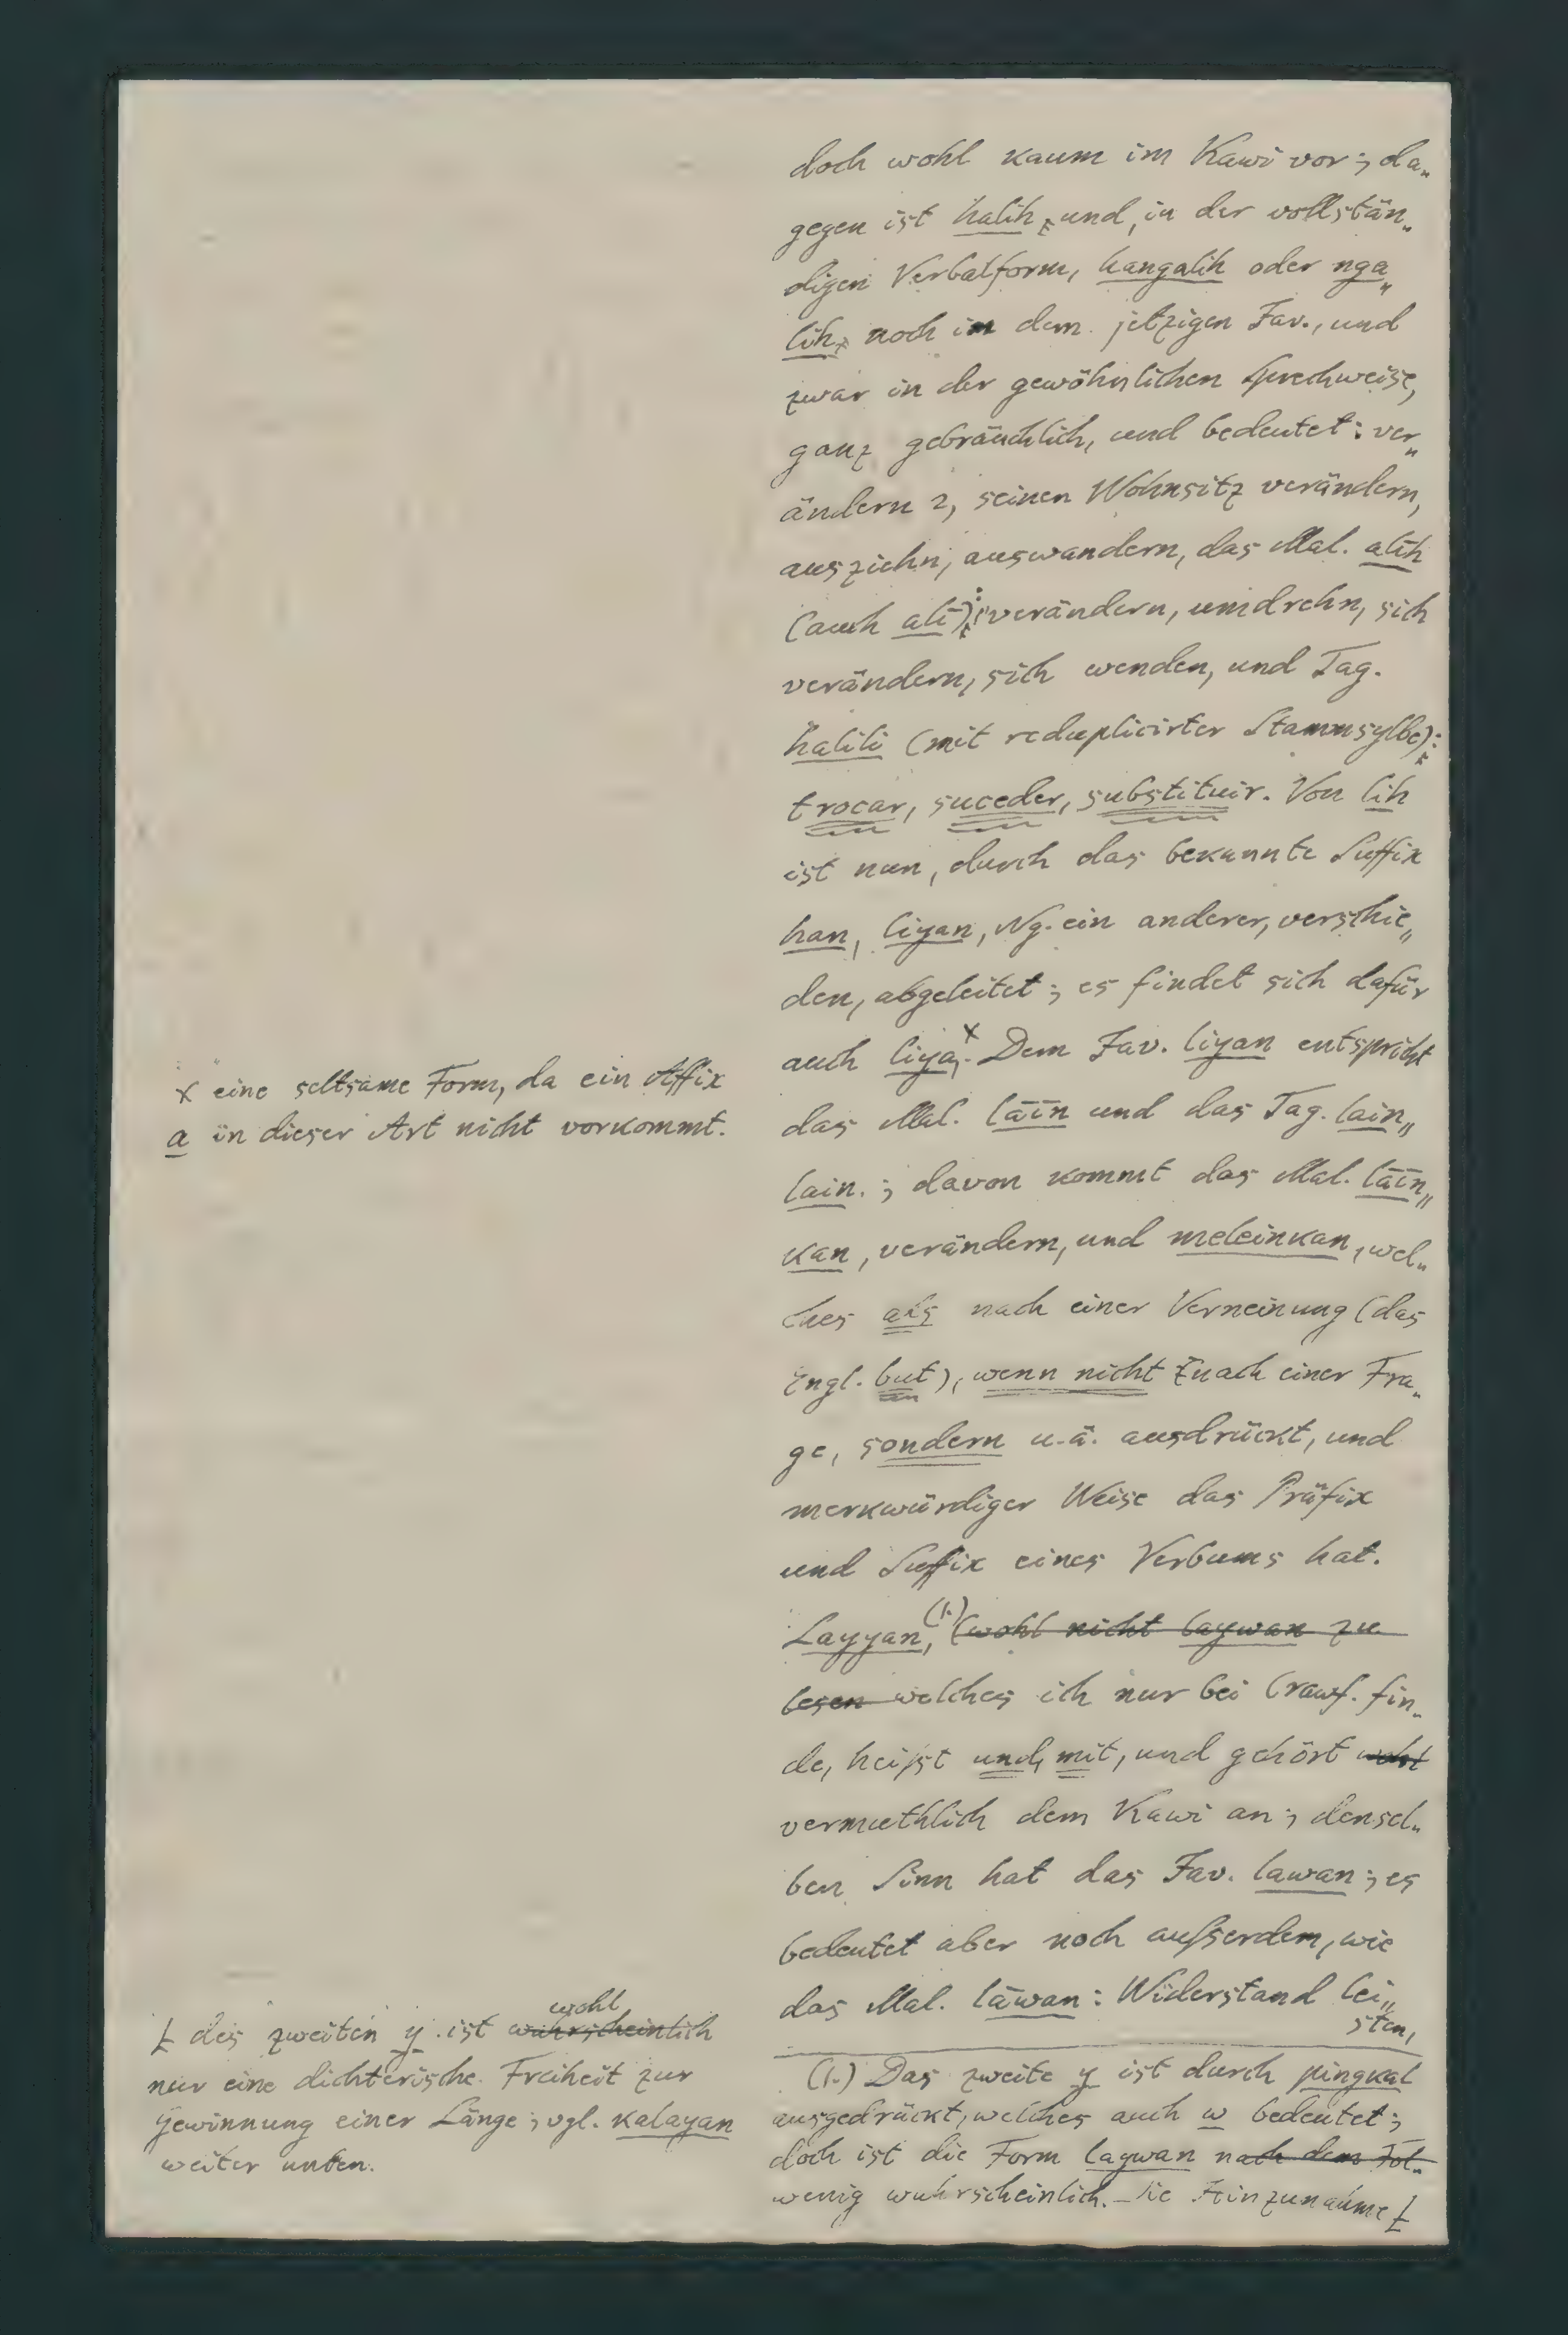 doch wohl kaum im Kawi vor; da„
gegen ist halih, und, in der vollstän„
digen Verbalform, hangalih oder nga„
lih, noch in dem jetzigen Jav., und
zwar in der gewöhnlichen Sprechweise,
ganz gebräuchlich, und bedeutet: ver„
ändern 2, seinen Wohnsitz verändern,
ausziehn, auswandern, das Mal. alīh
(auch alī): verändern, umdrehn, sich
verändern, sich wenden, und Tag.
halili (mit reduplicirter Stammsylbe):
trocar, suceder, substituir. Von lih
ist nun, durch das bekannte Suffix
han, liyan, Ng. ein anderer, verschie„
den, abgeleitet; es findet sich dafür
auch liya,x Dem Jav. liyan entspricht
x eine seltsame Form, da ein Affix
a in dieser Art nicht vorkommt.
das Mal. lāīn und das Tag. lain„
lain.; davon kommt das Mal. lāīn„
kan, verändern, und meleinkan, wel„
ches als nach einer Verneinung (das
Engl. but), wenn nicht nach einer Fra„
ge, sondern u. ä. ausdrückt, und
merkwürdiger Weise das Präfix
und Suffix eines Verbums hat.
Layyan,(1.) (wohl nicht laywan zu
lesen welches ich nur bei Crawf. fin„
de, heißt und, mit, und gehört wohl
vermuthlich dem Kawi an; densel„
ben Sinn hat das Jav. lawan; es
bedeutet aber noch außerdem, wie
das Mal. lāwan: Widerstand lei„
sten,
(1.) Das zweite y ist durch pingkal
ausgedrückt, welches auch w bedeutet;
doch ist die Form laywan nach dem Fol„
wenig wahrscheinlich. – Die Hinzunahme Ł
wohl
Ł des zweiten y ist wahrscheinlich
nur eine dichterische Freiheit zur
Gewinnung einer Länge; vgl. kalayan
weiter unten.